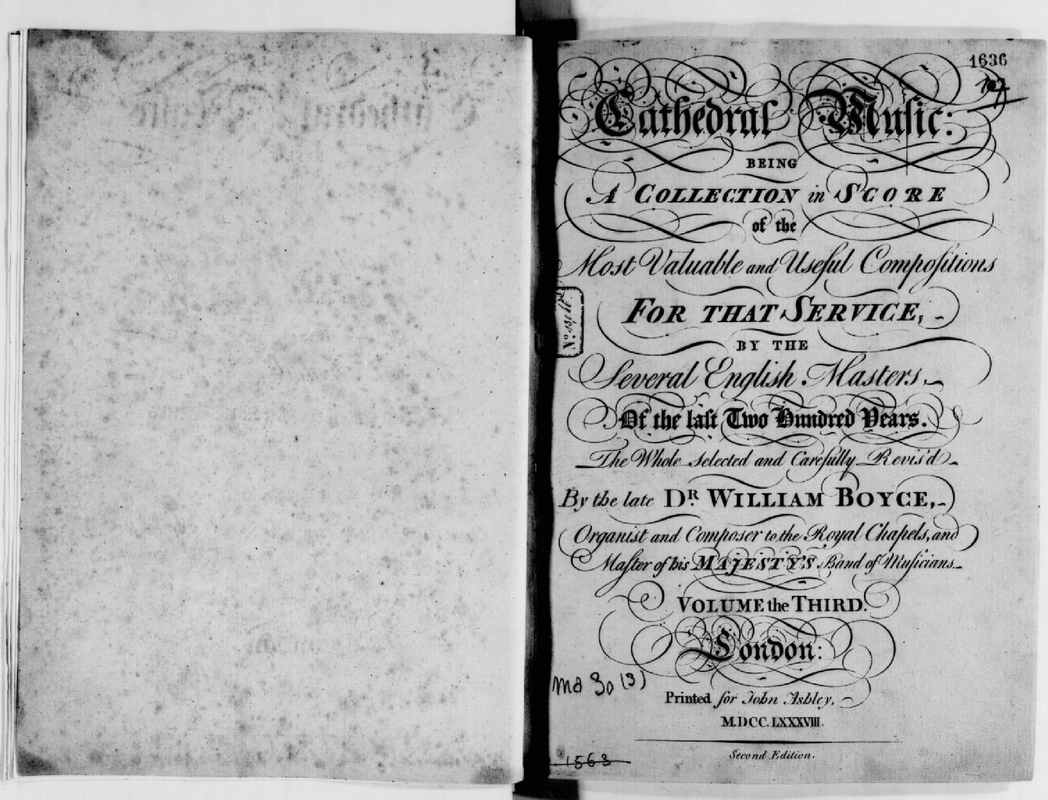 1636
Cathedral Music:
BEING
A COLLECTION in SCORE
of the
Most Valuable and Useful Compoſitions
FOR THAT SERVICE,
BY THE
Several English Masters
Of the laſt Two Hundred Years.
The Whole Selected and Carefully Revis'd
By the late DR. WILLIAM BOYCE,
Organist and Composer to the Royal Chapels, and
Maſter of his MAJESTY'S Band of Muſicians.
VOLUME the THIRD.
London:
Ma 30 (3)
Printed for John Ashley,
M.DCC.LXXXVIII.
Second Edition.
1563